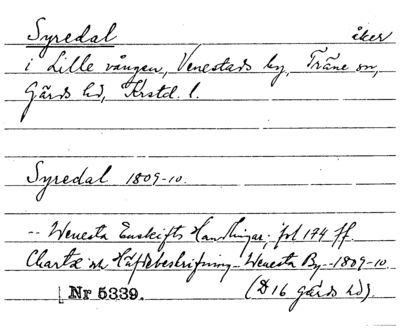 Syredal åker
i Lille vången, Venestads by, Träne sn,
Gärds hd, Krstd. l.
Syredal 1809-10.
-- Wenesta Enskifts Handlingar, fol 174 ff.
Charta och Häfdebeskrifning - Wenesta By - 1809-10.
Nr 5339. (D16 Gärds hd).